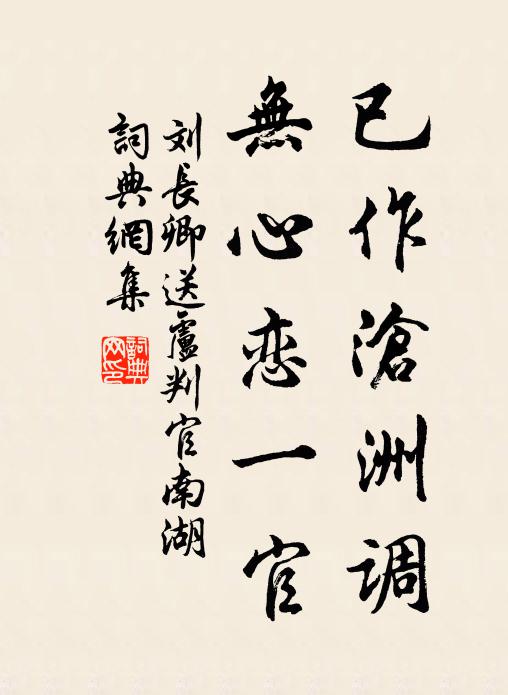 已作滄洲調
無心恋一官
刘長卿送盧判官南湖
詞典網集
詞典
网印